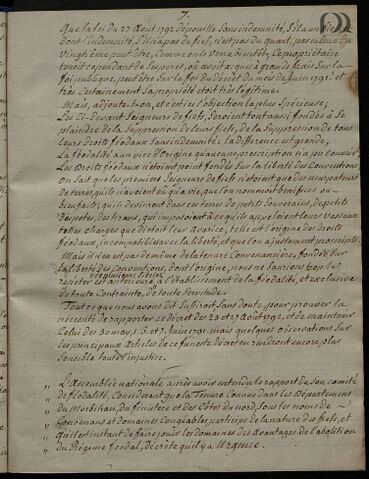 7.
Que la loi du 27 Aout 1792 dépouille sans indemnité, s'il a un
dont l'indemnité, s'il n'a pas de fief, n'est pas du quart, pas même du
vingtième peut être, comme on le verra bientôt. Ce propriétaire
tenoit cependant de ses peres, où avoit acquis à grands frais sur la
foi publique, peut être sur la foi du décret du mois de Juin 1791. et
très certainement sa propriété étoit très légitime.
Mais, ajoute-t-on, et c'est ici l'objection la plus spécieuse;
Les Ci-devant Seigneurs de fiefs, seroient tout aussi fondés à se
plaindre de la suppression de leurs fiefs, de la suppression de tous
leurs droits féodaux sans indemnité: la différence est grande,
La féodalité a un vice d'origine qu'aucune prescription n'a pu couvrir
Les droits féodaux n'étoient point fondés sur la liberté des conventions,
On sait que les premiers Seigneurs de fiefs n'étoient que des usurpateurs
de terres, qu'ils n'avoient eû qu'à vie, que l'on nommoit bénéfices ou
bienfaits; qu'ils devinrent dans ces terres de petits Souverains, de petits
despotes, des tirans, qui imposoient à ce qu'ils appeloient leurs vassaux
telles charges que dictoit leur avarice, telle est l'origine des droits
féodaux, incompatibles avec la liberté, et que l'on a justement proscripts.
Mais il n'en est pas de même de la tenure Convenancière, fondée sur
la liberté des conventions, dont l'origine, nous ne saurions trop le
répéter est antérieure de plusieurs siècles à l'établissement de la féodalité, et exclusive
de toute contrainte, de toute servitude.
Tout ce que nous avons dit suffiroit sans doute, pour prouver la
nécessité de rapporter ce décret des 23 et 27 Août 1792, et de maintenir
Celui des 30 may, 1. 6. et 7. Juin 1791. mais quelques observations sur
les principaux articles de ce funeste décret en rendront encore plus
sensible toute l'injustice.
" L'Assemblée nationale après avoir entendu le rapport de son comité
" de féodalité, Considérant que la Tenure Connue dans les Départemens
" du Morbihan, du finistère et des Côtes du nord, sous les noms de
" Convenans et domaines Congéables, participe de la nature des fiefs, et
" qu'il est instant de faire jouir les domaniers des avantages de l'abolition
" du Régime féodal, décrète qu'il y a Urgence.